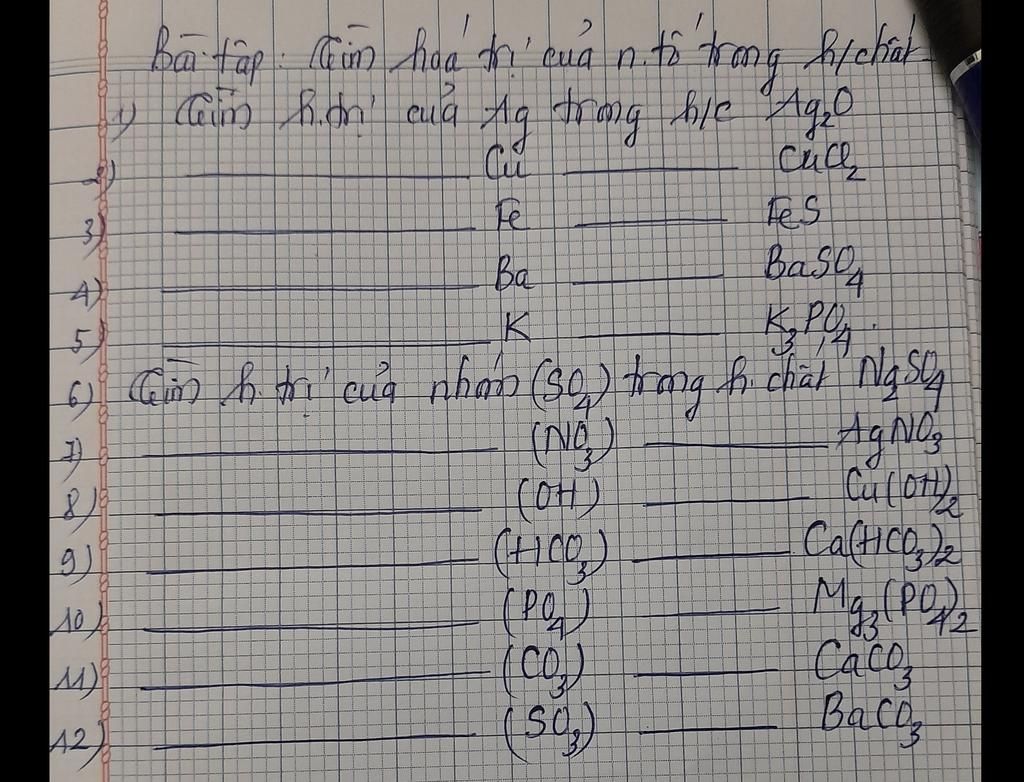 Bài tập: Tìm hoá trị của n.tố trong h/chất
1) Tìm h.trị của Ag trong h/c Ag₂O
2) Cu CuCl₂
3) Fe FeS
4) Ba BaSO₄
5) K K₃PO₄.
6) Tìm h.trị của nhóm (SO₄) trong h.chất Na₂SO₄
7) (NO₃) AgNO₃
8) (OH) Cu(OH)₂
9) (HCO₃) Ca(HCO₃)₂
10) (PO₄) Mg₃(PO₄)₂
11) (CO₃) CaCO₃
12) (SO₃) BaCO₃